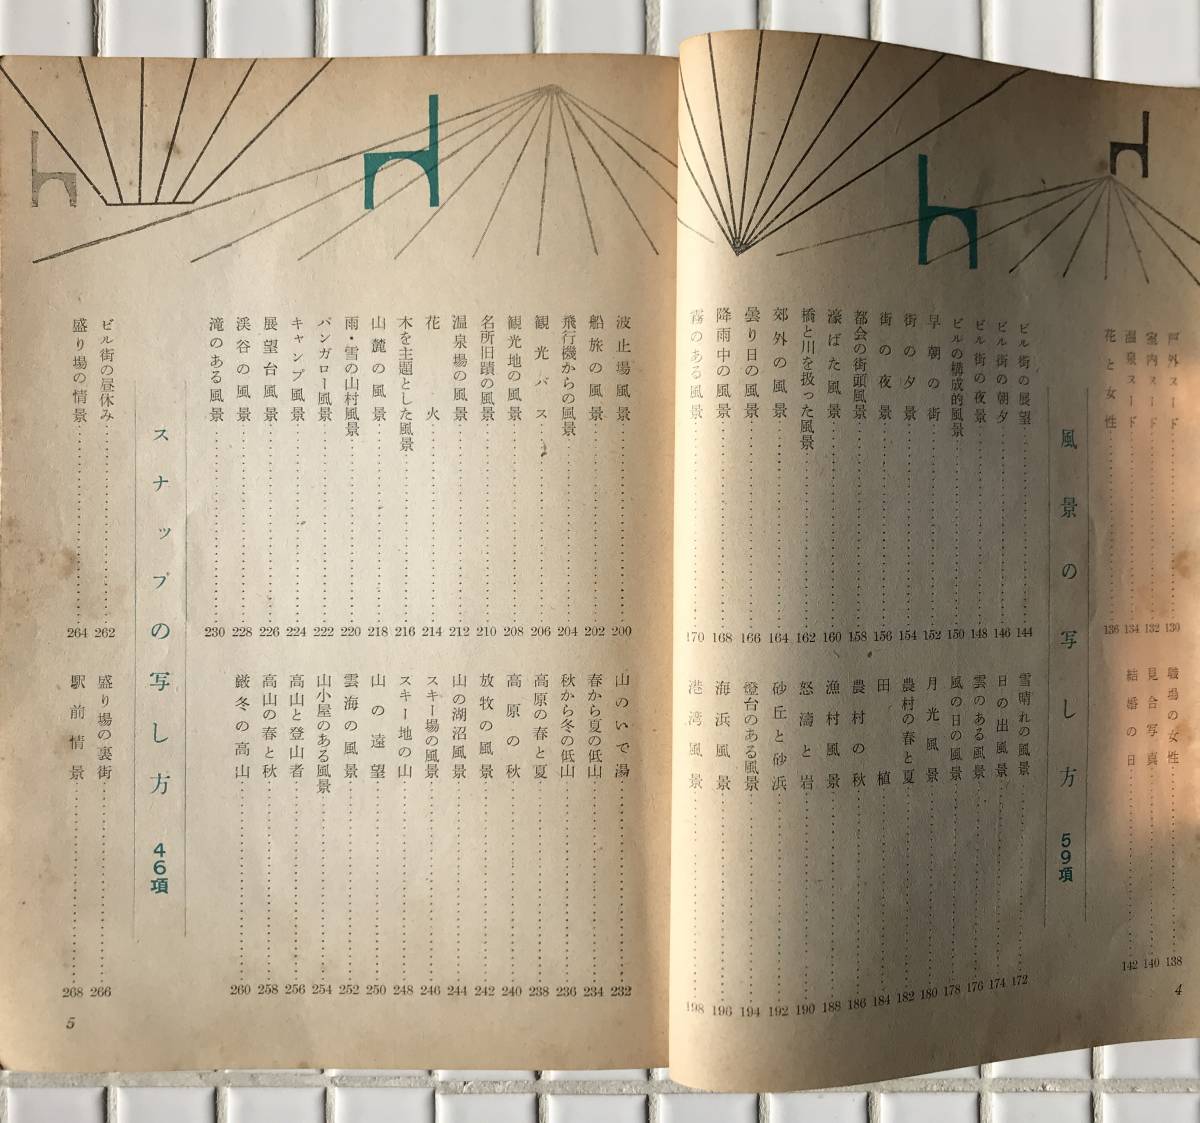 戸外ヌード 130
室内ヌード 132
温泉ヌード 134
花と女性 136
職場の女性 138
見合写真 140
結婚の日 142
風景の写し方 59項
ビル街の展望 144
ビル街の朝夕 146
ビル街の夜景 148
ビルの構成的風景 150
早朝の街 152
街の夕景 154
街の夜景 156
都会の街頭風景 158
濠ばた風景 160
橋と川を扱った風景 162
郊外の風景 164
曇り日の風景 166
降雨中の風景 168
霧のある風景 170
雪晴れの風景 172
日の出風景 174
雲のある風景 176
風の日の風景 178
月光風景 180
農村の春と夏 182
田植 184
農村の秋 186
漁村風景 188
怒濤と岩 190
砂丘と砂浜 192
燈台のある風景 194
海浜風景 196
港湾風景 198
4
波止場風景 200
船旅の風景 202
飛行機からの風景 204
観光バス 206
観光地の風景 208
名所旧蹟の風景 210
温泉場の風景 212
花火 214
木を主題とした風景 216
山麓の風景 218
雨・雪の山村風景 220
バンガロー風景 222
キャンプ風景 224
展望台風景 226
渓谷の風景 228
滝のある風景 230
山のいで湯 232
春から夏の低山 234
秋から冬の低山 236
高原の春と夏 238
高原の秋 240
放牧の風景 242
山の湖沼風景 244
スキー場の風景 246
スキー地の山 248
山の遠望 250
雲海の風景 252
山小屋のある風景 254
高山と登山者 256
高山の春と秋 258
厳冬の高山 260
スナップの写し方 46項
ビル街の昼休み 262
盛り場の情景 264
盛り場の裏街 266
駅前情景 268
5